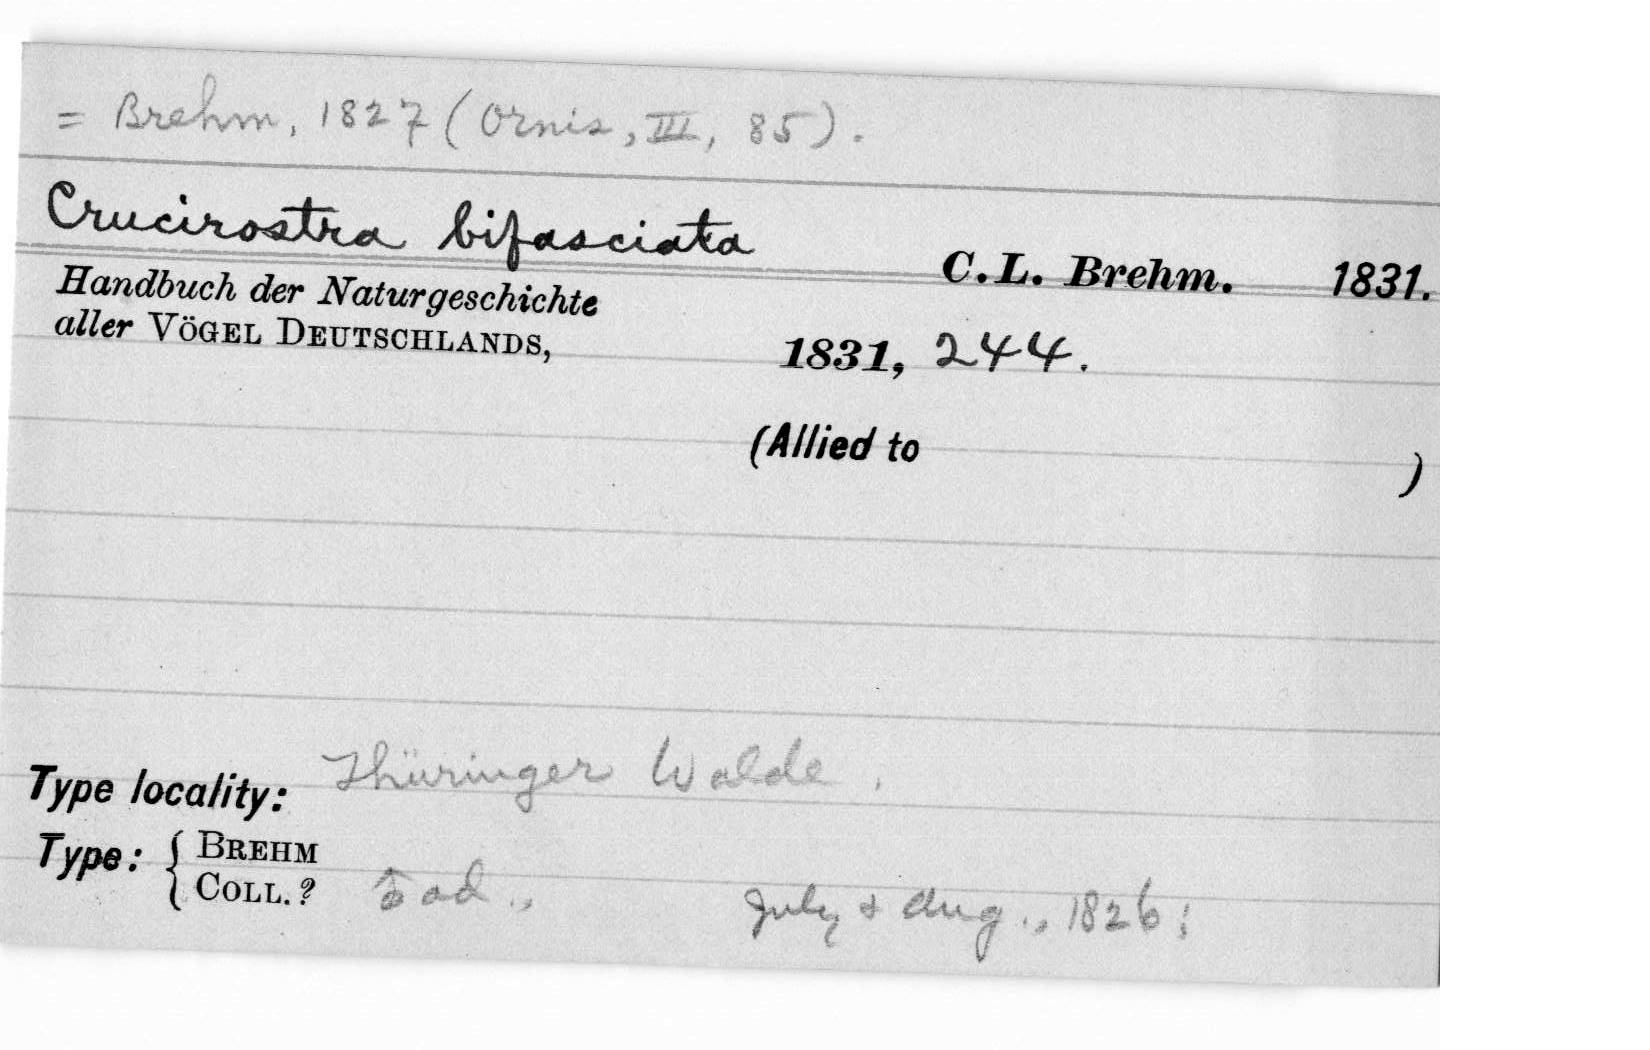 = Brehm, 1827 (Ornis, III, 85).
Crucirostra bifasciata
C.L. Brehm. 1831.
Handbuch der Naturgeschichte
aller VÖGEL DEUTSCHLANDS,
1831, 244.
(Allied to )
Type locality: Thüringer Walde.
Type: { BREHM
COLL. ? ad., July & Aug., 1826;